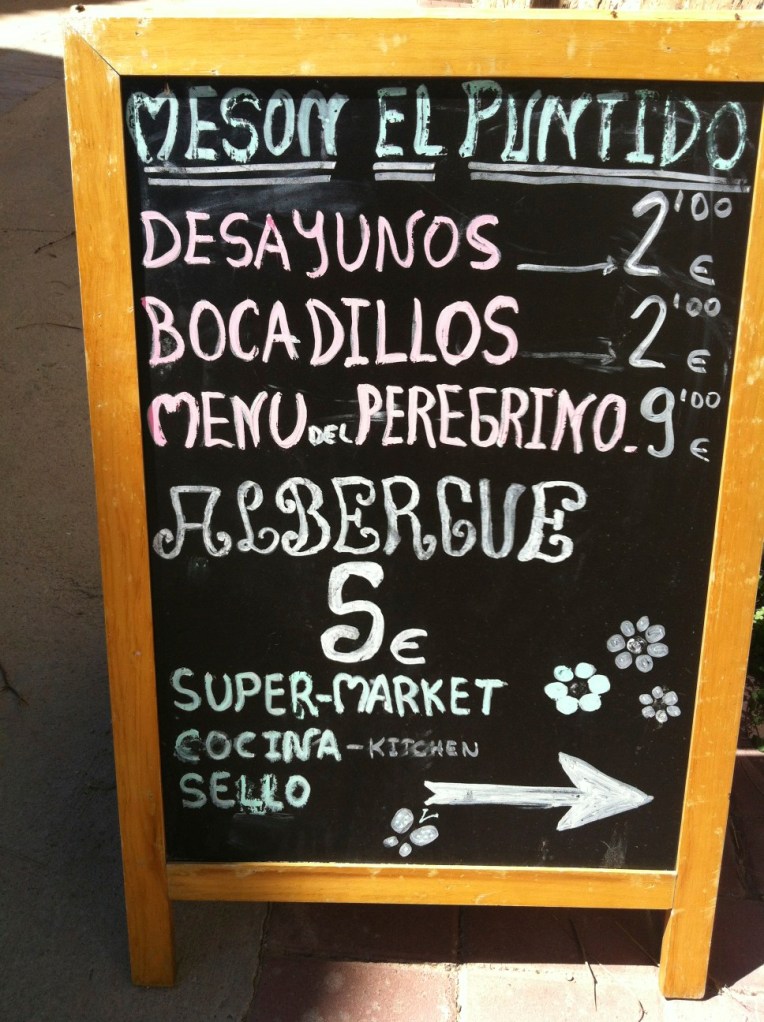 MESON EL PUNTIDO
DESAYUNOS → 2'00 €
BOCADILLOS → 2'00 €
MENU DEL PEREGRINO. 9'00 €
ALBERGUE
5 €
SUPER-MARKET
COCINA - KITCHEN
SELLO